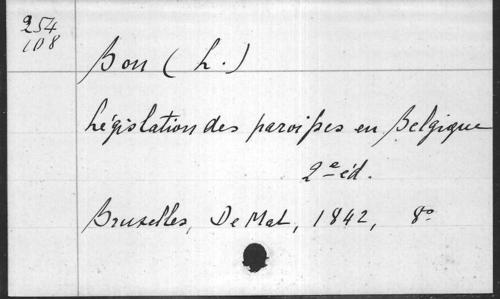 254
108
Bon (L.)
Législation des paroisses en Belgique
2e éd.
Bruxelles, De Mat, 1842, 8o